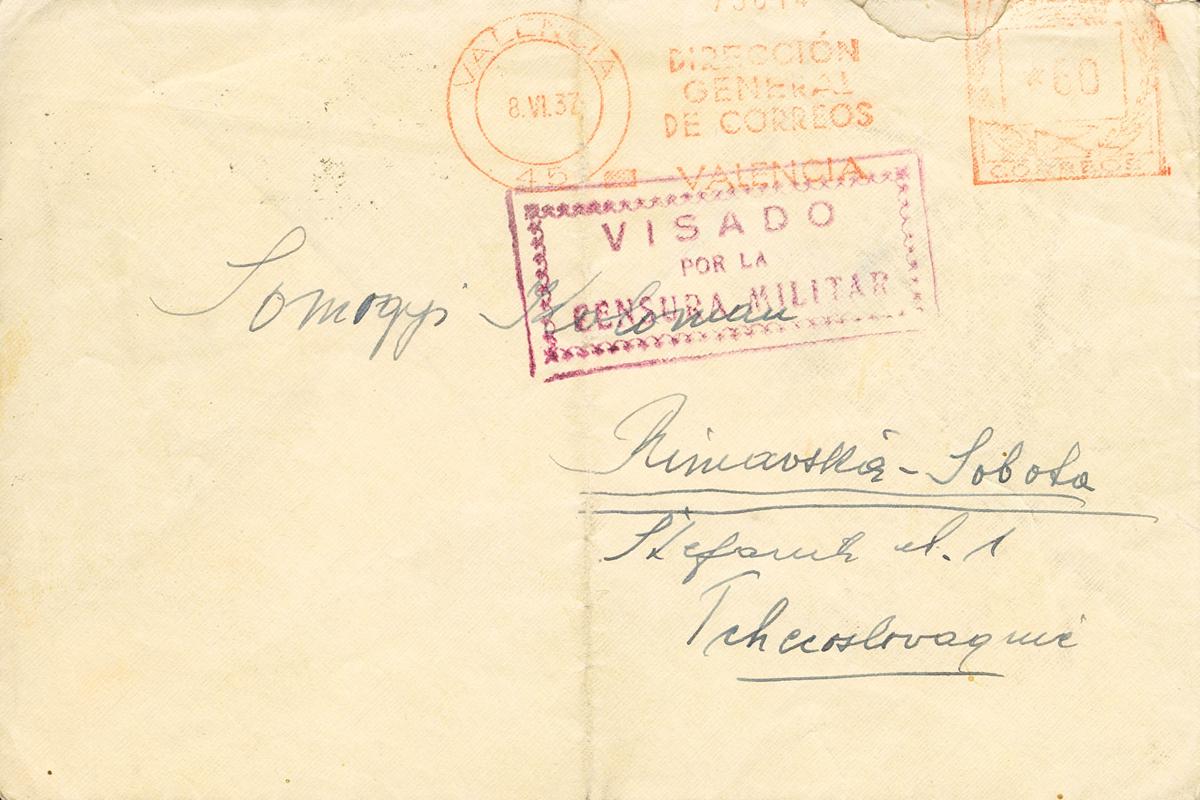 VALENCIA
8.VI.37
45
DIRECCIÓN
GENERAL
DE CORREOS
VALENCIA
*60
CORREOS
VISADO
POR LA
CENSURA MILITAR
Somogyi Koloman
Rimavská-Sobota
Štefanik ul. 1
Tchecoslovaquie